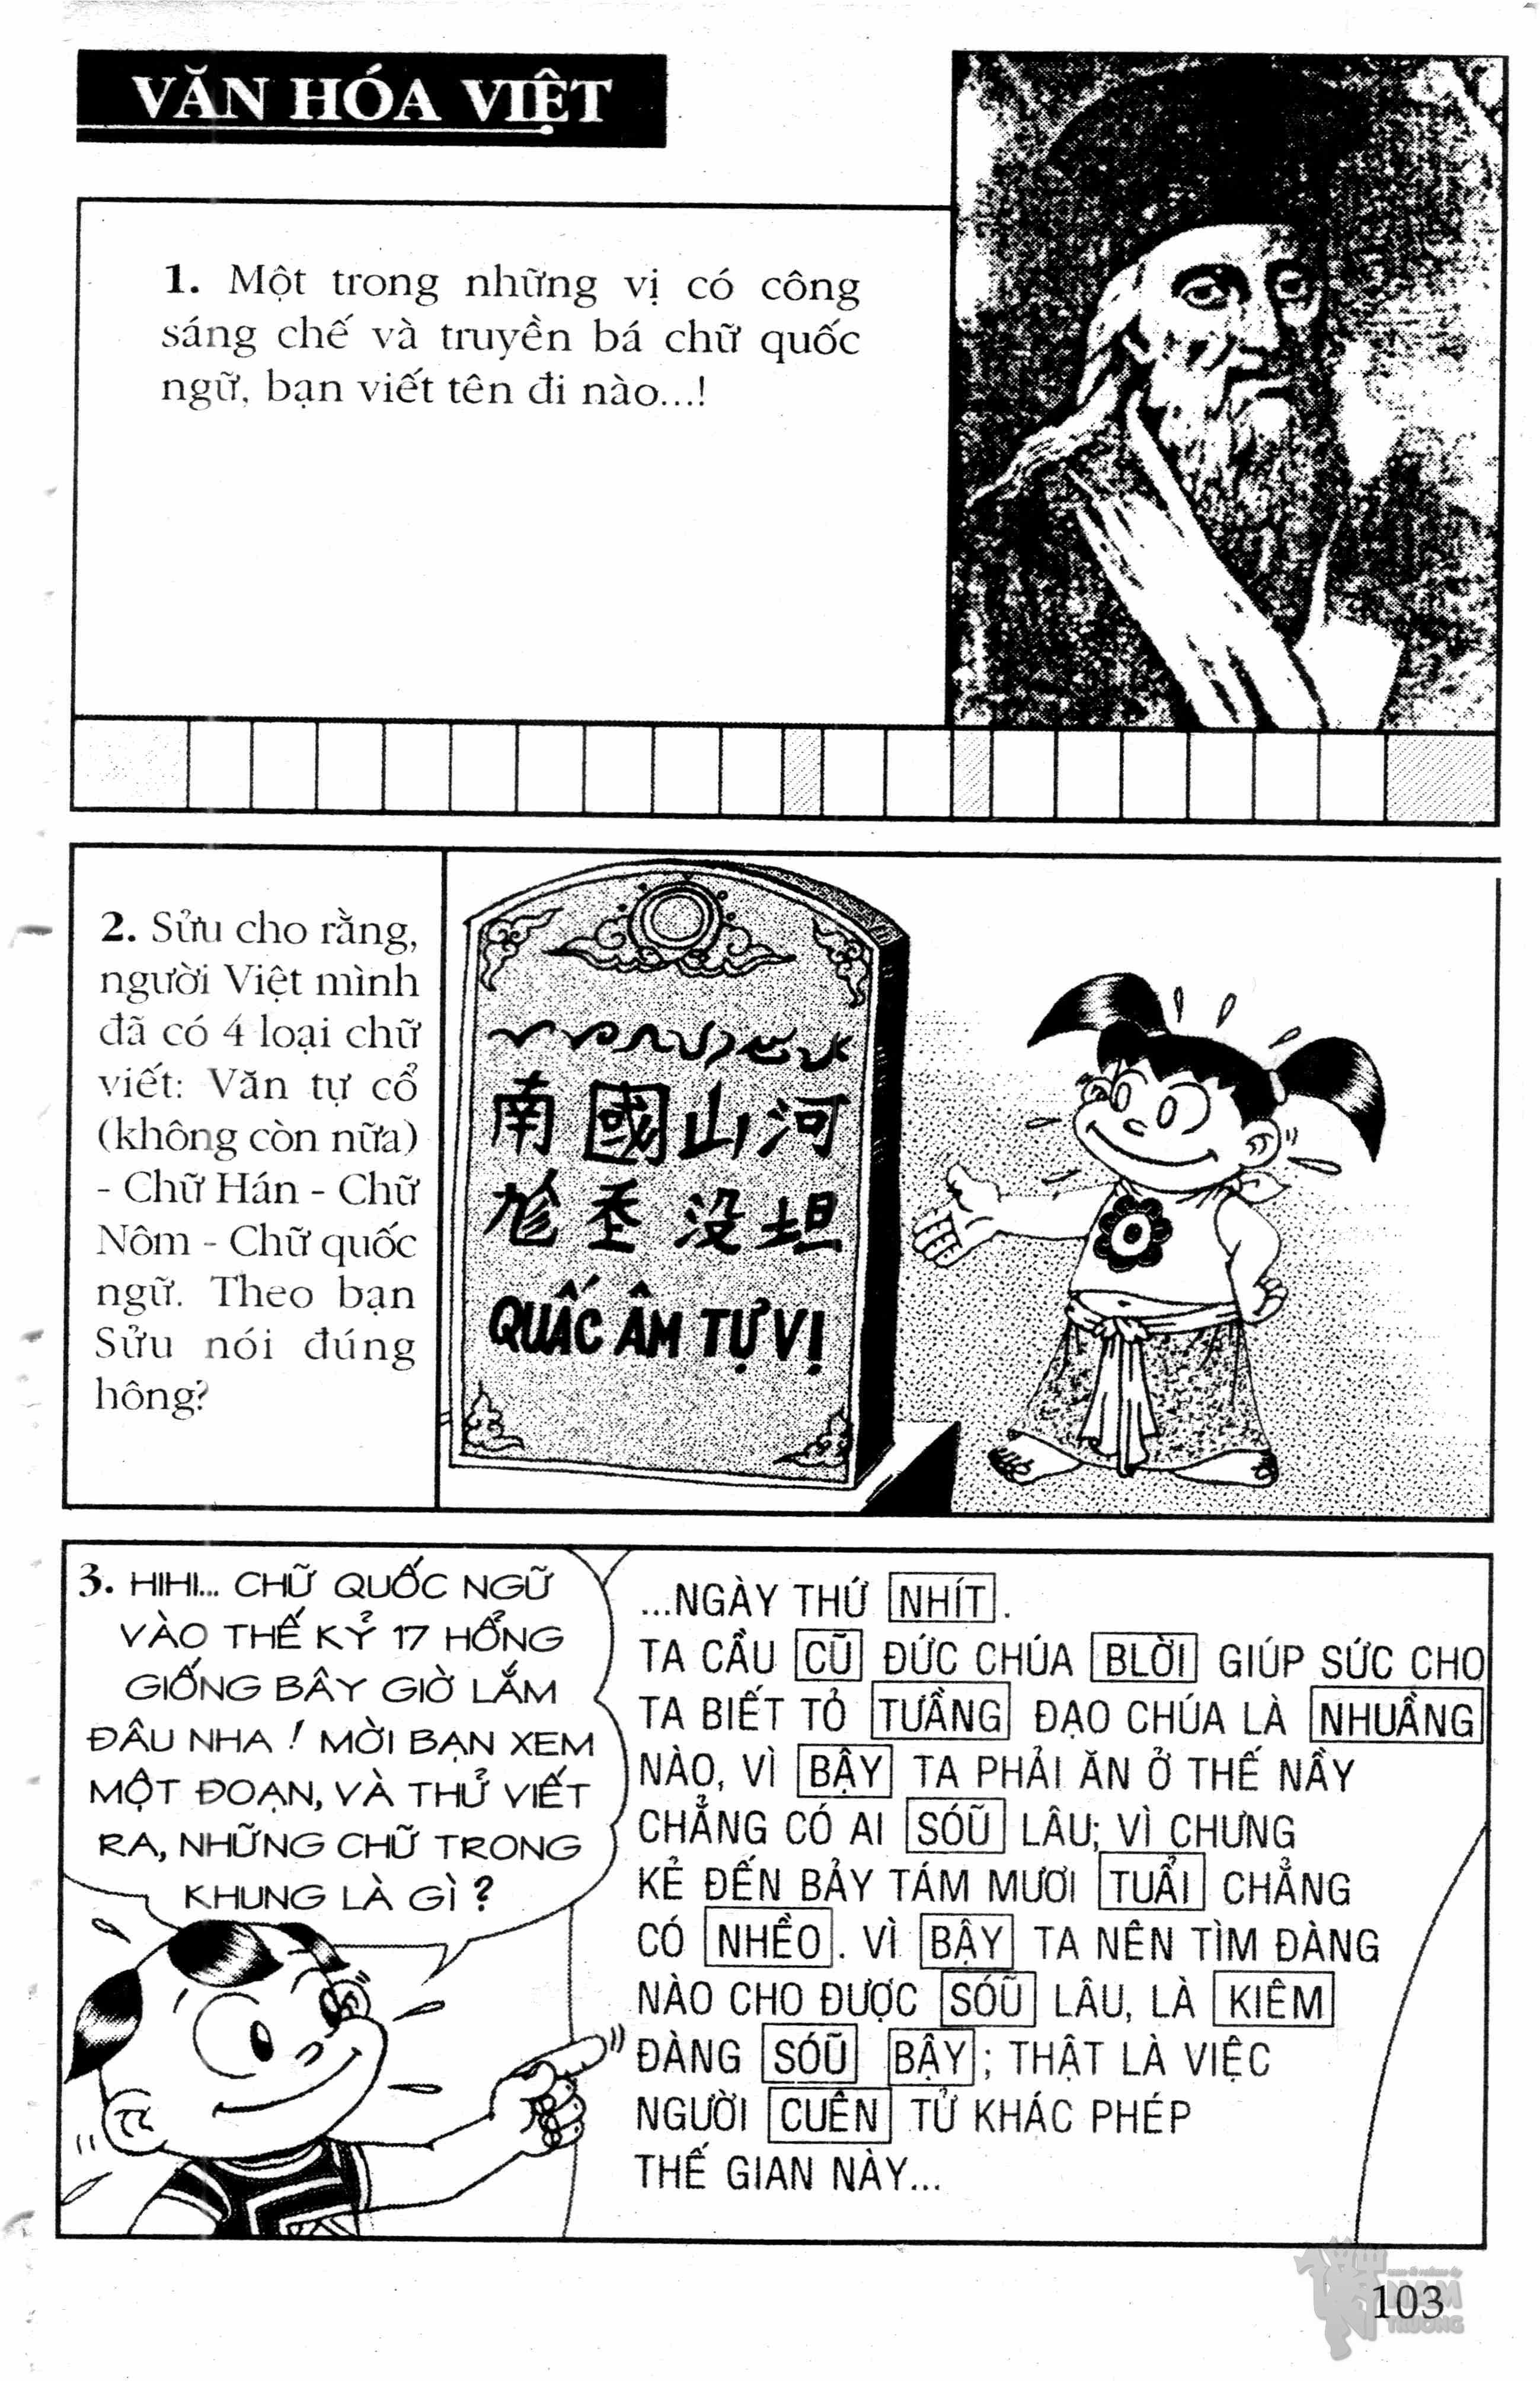 VĂN HÓA VIỆT
1. Một trong những vị có công
sáng chế và truyền bá chữ quốc
ngữ, bạn viết tên đi nào...!
2. Sửu cho rằng,
người Việt mình
đã có 4 loại chữ
viết: Văn tự cổ
(không còn nữa)
- Chữ Hán - Chữ
Nôm - Chữ quốc
ngữ. Theo bạn
Sửu nói đúng
hông?
南國山河
没坦
QUẤC ÂM TỰ VỊ
3. HIHI... CHỮ QUỐC NGỮ
VÀO THẾ KỶ 17 HỔNG
GIỐNG BÂY GIỜ LẮM
ĐÂU NHA! MỜI BẠN XEM
MỘT ĐOẠN, VÀ THỬ VIẾT
RA, NHỮNG CHỮ TRONG
KHUNG LÀ GÌ?
...NGÀY THỨ NHÍT.
TA CẦU CŨ ĐỨC CHÚA BLỜI GIÚP SỨC CHO
TA BIẾT TỎ TƯẦNG ĐẠO CHÚA LÀ NHUẦNG
NÀO, VÌ BẬY TA PHẢI ĂN Ở THẾ NẦY
CHẲNG CÓ AI SÓŨ LÂU; VÌ CHƯNG
KẺ ĐẾN BẢY TÁM MƯƠI TUẨI CHẲNG
CÓ NHỀO. VÌ BẬY TA NÊN TÌM ĐÀNG
NÀO CHO ĐƯỢC SÓŨ LÂU, LÀ KIÊM
ĐÀNG SÓŨ BẬY; THẬT LÀ VIỆC
NGƯỜI CUÊN TỬ KHÁC PHÉP
THẾ GIAN NÀY...
103
NAM
TRƯỜNG